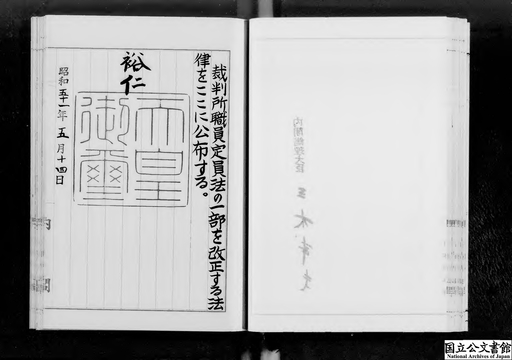 裁判所職員定員法の一部を改正する法
律をここに公布する。
裕仁
天皇
御璽
昭和五十一年五月十四日
内閣総理大臣 三木武夫
国立公文書館
National Archives of Japan